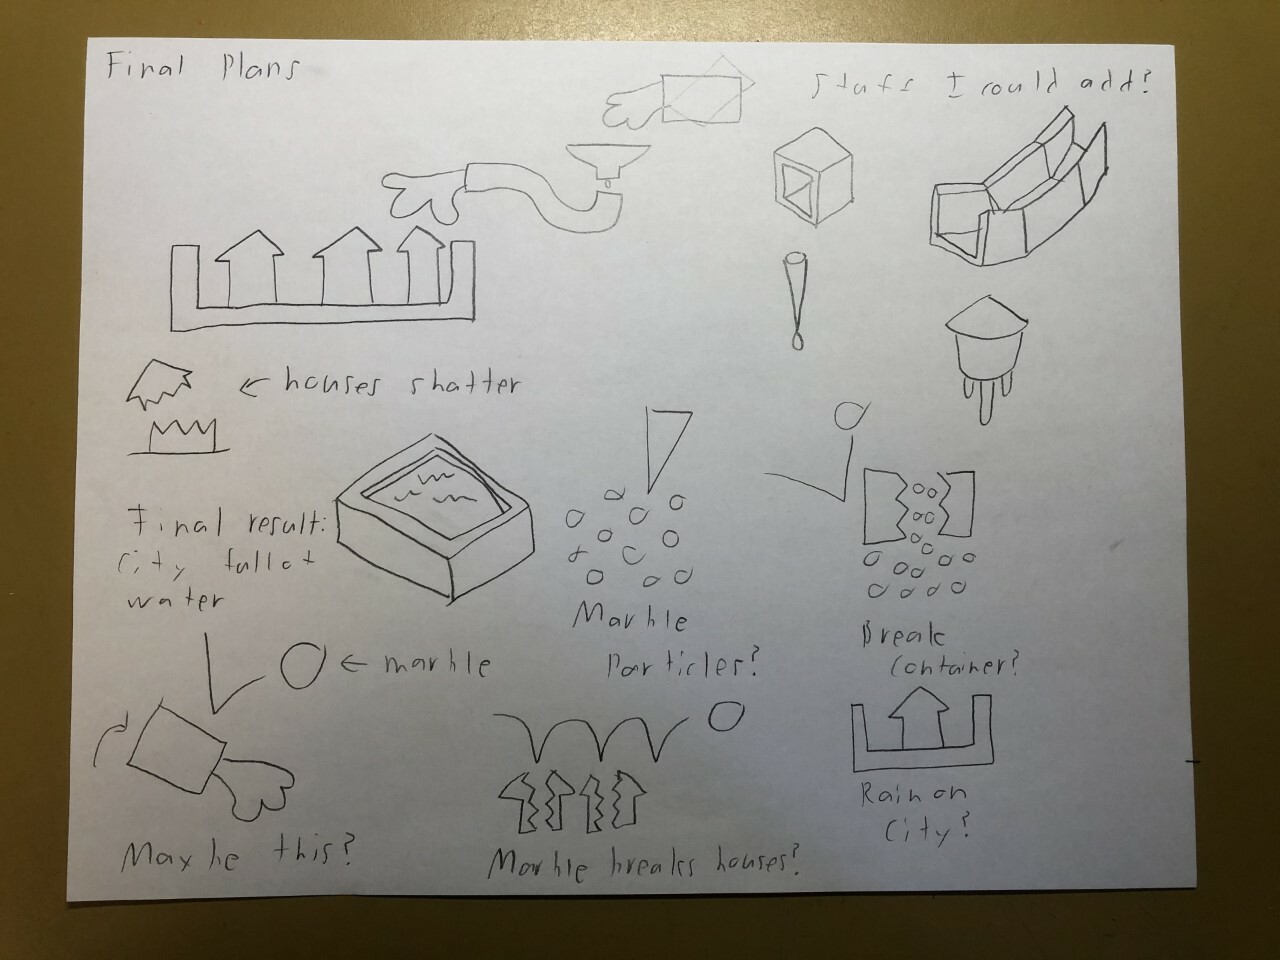 Final Plans
Stuff I could add?
← houses shatter
Final result:
City full of
water
Marble
Particles?
Break
Container?
← marble
Rain on
City?
Maybe this?
Marble breaks houses?